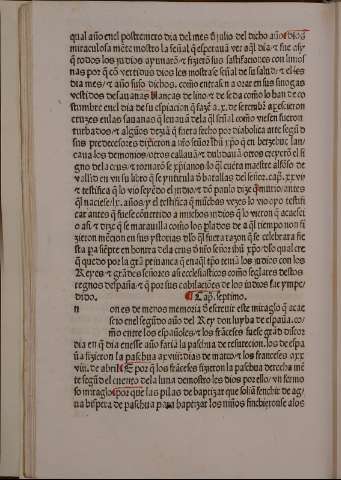 qual año enel postremero dia del mes d̃ julio del dicho año: dios
miraculosa mẽte mostro la señal q̃ esperauã ver aq̃l dia ⁊ fue asy
q̃ todos los judios ayunarõ ⁊ fizierõ sus satisfaciones con limos
nas por q̃ cõ vertiduo dios les mostrase señal de su salud: ⁊ el ies
dia mes ⁊ año suso dichos. como entrasen a orar en sus sinogas
vestidos de sauanas blancas de lino ⁊ de seda como lo han de co
stumbre en el dia de su espiacion q̃ fazẽ .x. de setenbr̃ aparescieron
cruzes en las sauanas q̃ leuauã dela q̃l señal como viesen fueron
turbados ⁊ algũos deziã q̃ fuera fecho por diabolica arte segũd
sus predecesores dixeron a nr̃o señor ihũ xp̃o q̃ en berzebuc lan
çaua los demonios ⁊ otros callauã ⁊ dubdauã otros creyerõ el fi
gno dela cruz ⁊ tornarõ se xp̃ianos lo q̃l cuẽta maestre alfõso de
vall'id en vn su libro q̃ se yntitula d̃ batallas del señor. cap. xxvij
⁊ testifica q̃ lo vio seyẽdo el judio ⁊ dõ paulo dize q̃ murio antes
q̃l naciese .lx. años. y el testifica q̃ muchas vezes lo vio oyo testifi
car antes q̃ fuese conuertido a muchos indios q̃ lo vieron q̃ acaesci
o asi: ⁊ dize q̃ se marauilla como los plados de aq̃l tienpo non fi
zieron mẽcion en sus ystorias dlo q̃l fuera razon q̃ se celebrara fie
sta pa siẽpre en honrra dela cruz d nr̃o señor ihũ xp̃o dlo qual cre
o q̃ quedo por la grã priuanca q̃ en aq̃l tpo̱ teniã los judios con los
Reyes ⁊ grãdes señores asi ecclesiasticos como seglares destos
regnos despaña ⁊ q̃ por sus cabilaciões de los indios fue ympe/
dido.
¶ Cap. septimo.
n on es de menos memoria d̃ escreuir este miraglo q̃ acae
scio enel segũdo año del Rey don luyba de españa. co/
mo entre los españoles ⁊ los frãceses fuese grãd discor
dia en q̃ dia en ese año fariã la paschua de resurecion. los de espa
ña fizieron la paschua a xviij. dias de março ⁊ los franceses a xx
viij. de abril ¶ E por q̃ los frãceses fizieron la paschua derecha mẽ
te segũd el cuento dela luna demostro les dios por ello vn fermo
so miraglo: por que las pilas de baptizar que soliã fenchir de ag/
ua bispera de paschua para baptizar los niños finchieronse alos